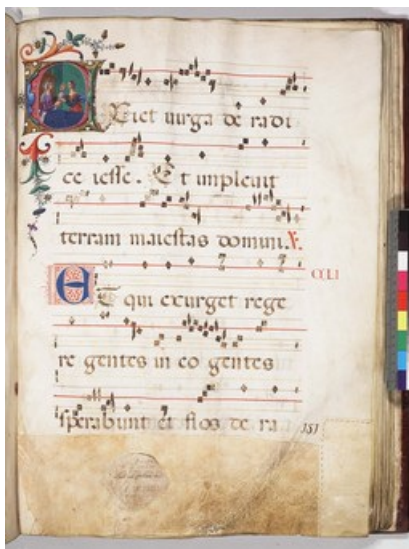 EXiet uirga de radi
ce iesse. Et impleuit
terram maiestas domini. V.
Et qui exurget rege
re gentes in eo gentes
sperabunt et flos de ra
151